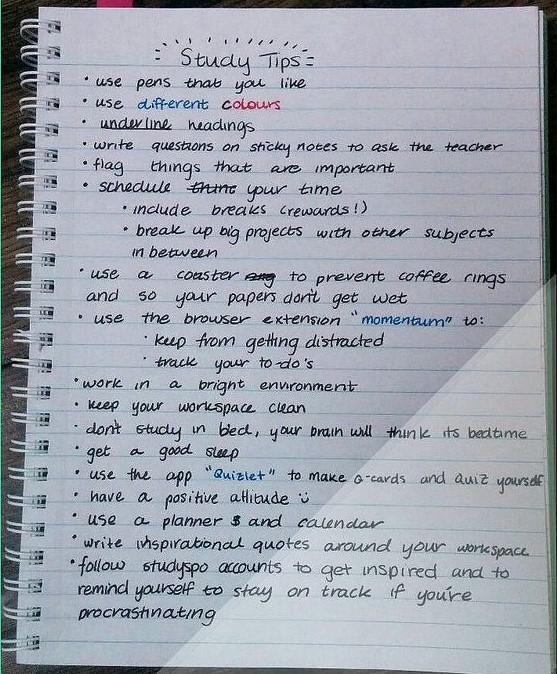 Study Tips
• use pens that you like
• use different colours
• underline headings
• write questions on sticky notes to ask the teacher
• flag things that are important
• schedule your time
• include breaks (rewards!)
• break up big projects with other subjects
in between
• use a coaster to prevent coffee rings
and so your papers don't get wet
• use the browser extension "momentum" to:
• keep from getting distracted
• track your to-do's
• work in a bright environment
• keep your workspace clean
• don't study in bed, your brain will think its bedtime
• get a good sleep
• use the app "Quizlet" to make Q-cards and quiz yourself
• have a positive attitude ü
• use a planner and calendar
• write inspirational quotes around your workspace
• follow studyspo accounts to get inspired and to
remind yourself to stay on track if you're
procrastinating